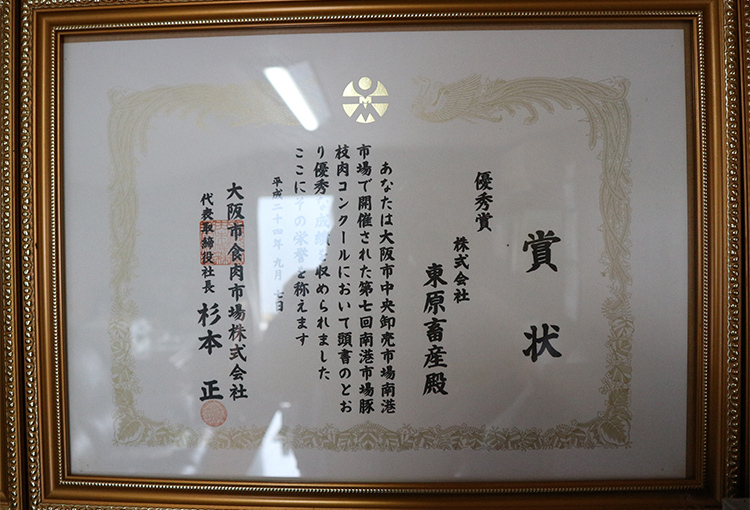 賞状
優秀賞
株式会社
東原畜産殿
あなたは大阪市中央卸売市場南港
市場で開催された第七回南港市場豚
枝肉コンクールにおいて頭書のとお
り優秀な成績を収められました
ここにその栄誉を称えます
平成二十四年九月七日
大阪市食肉市場株式会社
代表取締役社長 杉本 正